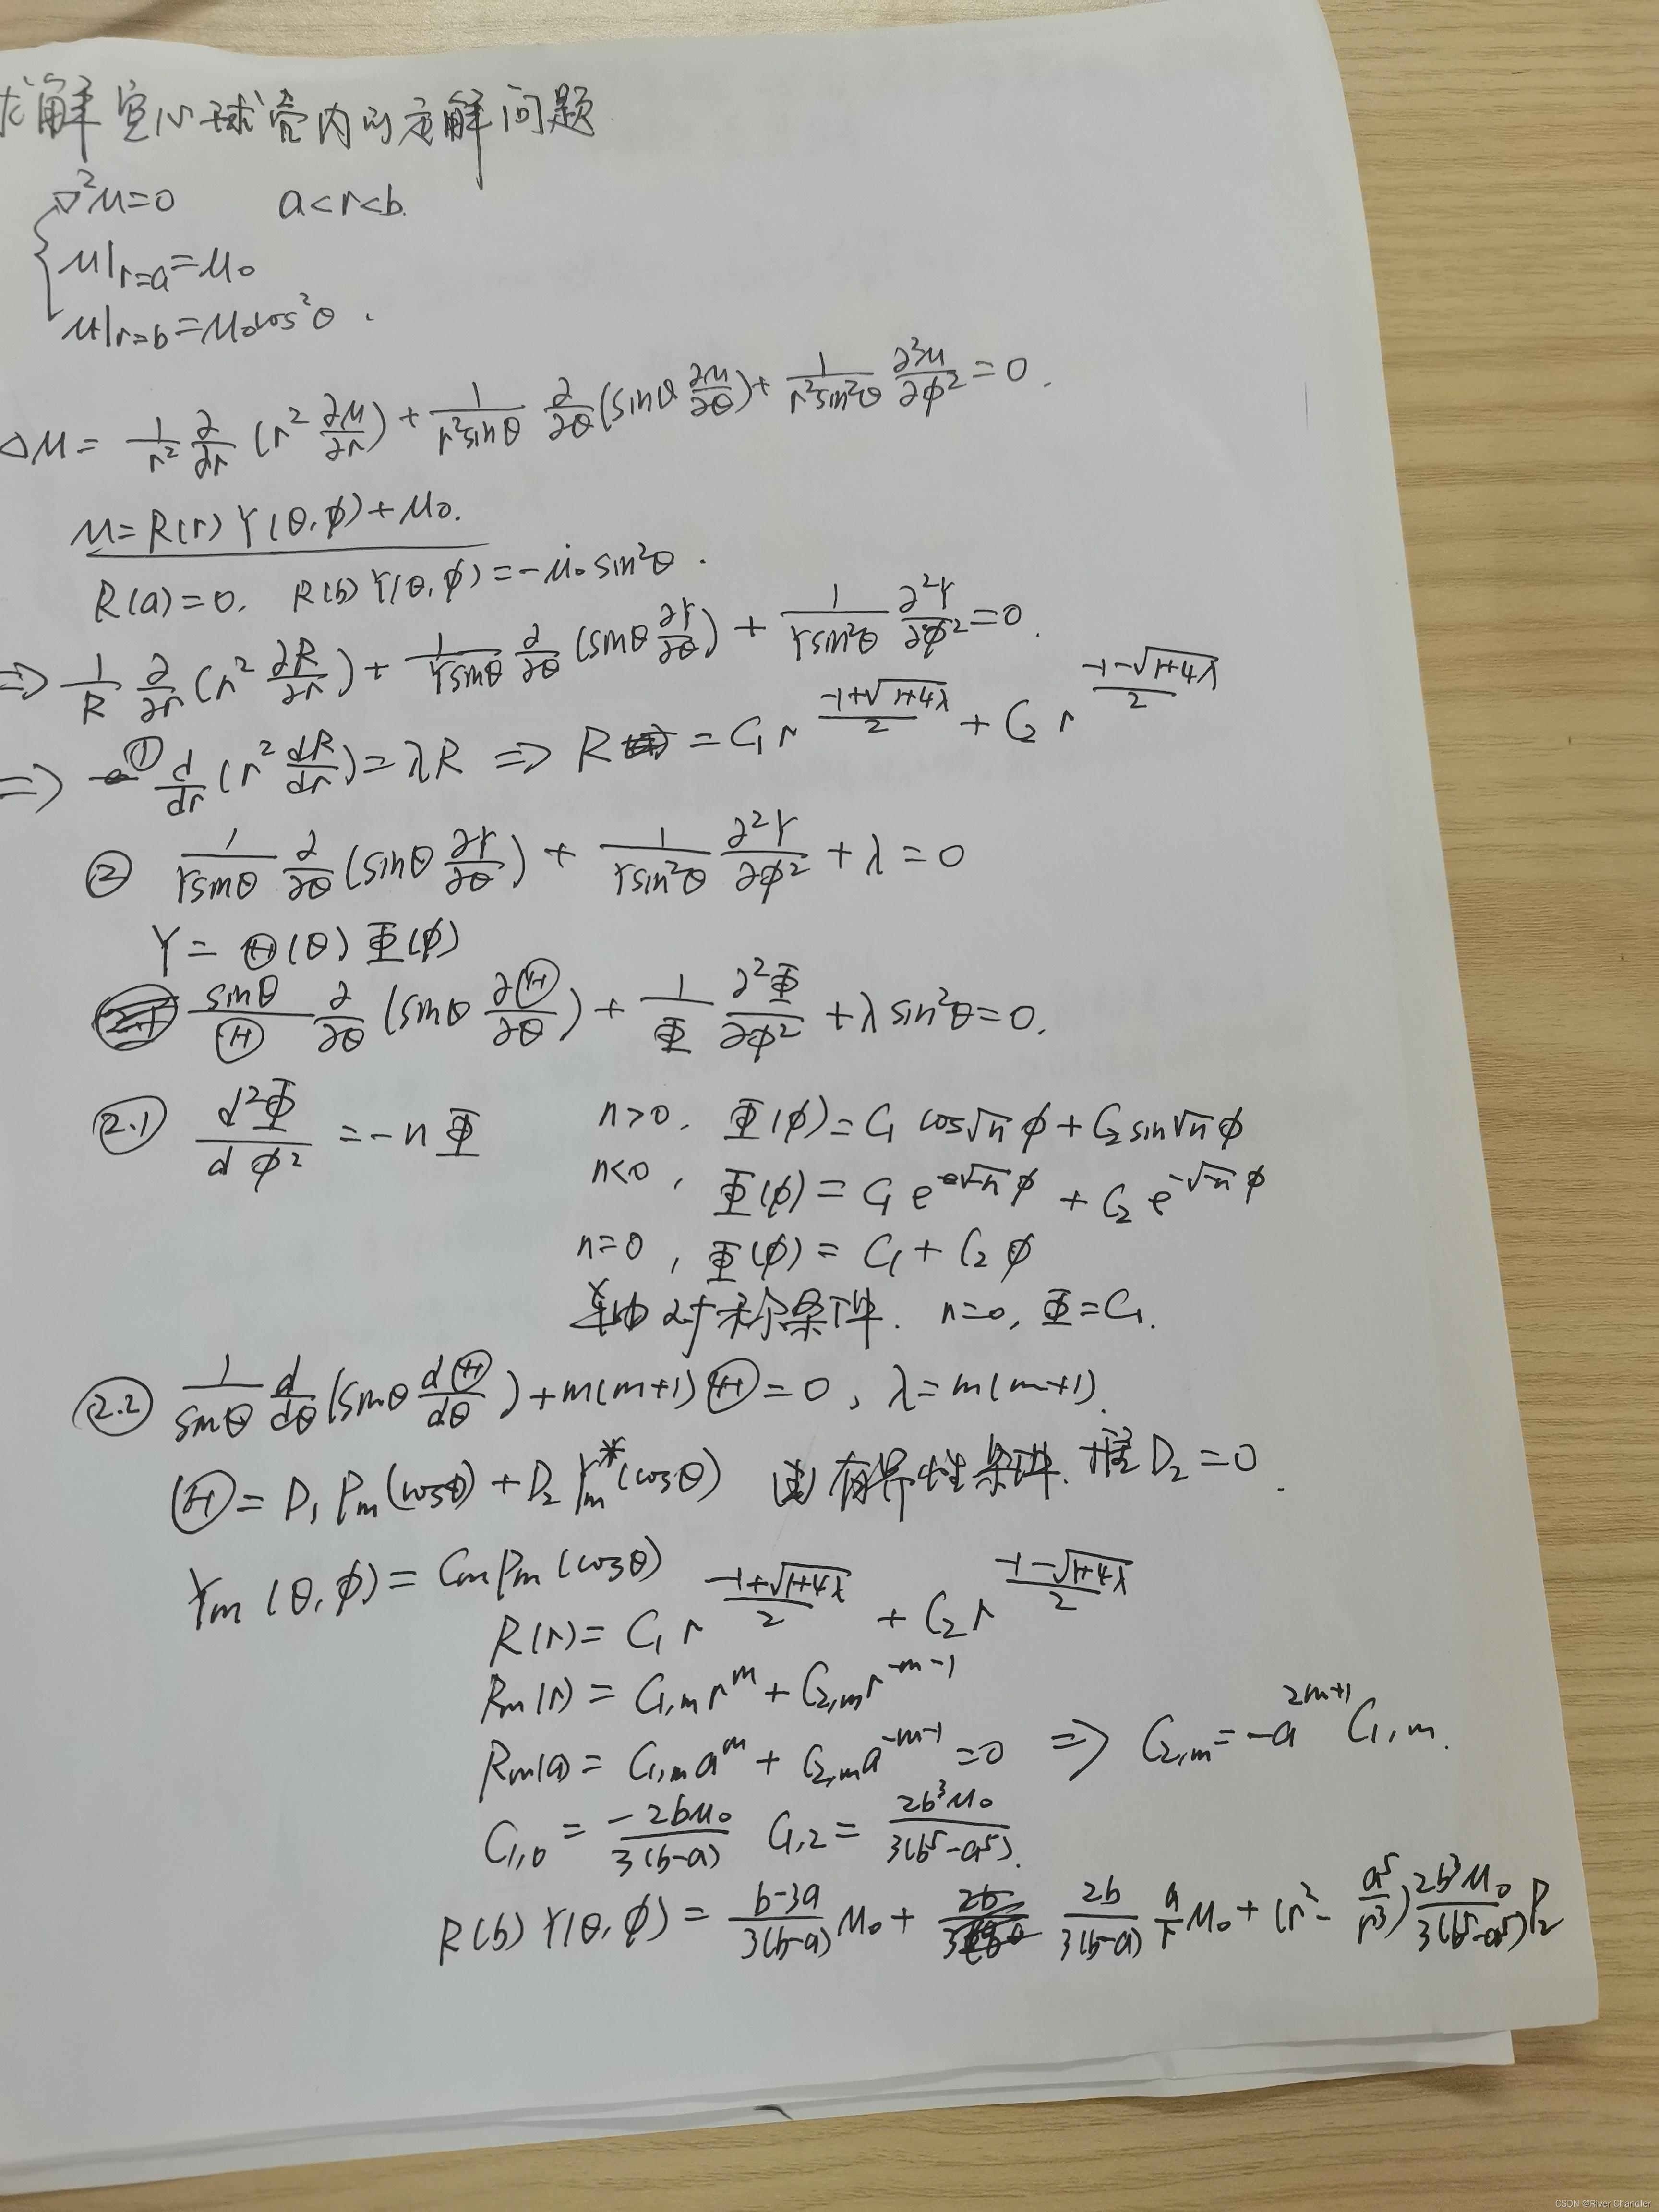 求解空心球壳内的定解问题
∇²u=0 a<r<b.
u|r=a=u₀
u|r=b=u₀cos²θ.
Δu = 1/r² ∂/∂r (r² ∂u/∂r) + 1/(r²sinθ) ∂/∂θ (sinθ ∂u/∂θ) + 1/(r²sin²θ) ∂²u/∂φ² = 0.
u=R(r)Y(θ,φ)+u₀.
R(a)=0. R(b)Y(θ,φ)=-u₀sin²θ.
⇒ 1/R ∂/∂r (r² ∂R/∂r) + 1/(Ysinθ) ∂/∂θ (sinθ ∂Y/∂θ) + 1/(Ysin²θ) ∂²Y/∂φ² = 0.
⇒ ① d/dr (r² dR/dr) = λR ⇒ R = C₁ r^((-1+√(1+4λ))/2) + C₂ r^((-1-√(1+4λ))/2)
② 1/(Ysinθ) ∂/∂θ (sinθ ∂Y/∂θ) + 1/(Ysin²θ) ∂²Y/∂φ² + λ = 0
Y = Θ(θ) Φ(φ)
sinθ/Θ ∂/∂θ (sinθ ∂Θ/∂θ) + 1/Φ ∂²Φ/∂φ² + λ sin²θ = 0.
(2.1) d²Φ/dφ² = -nΦ n>0. Φ(φ) = C₁ cos√n φ + C₂ sin√n φ
n<0, Φ(φ) = C₁ e^(√-n φ) + C₂ e^(-√-n φ)
n=0, Φ(φ) = C₁ + C₂ φ
轴对称条件. n=0, Φ=C₁.
(2.2) 1/sinθ d/dθ (sinθ dΘ/dθ) + m(m+1)Θ = 0, λ=m(m+1).
Θ = D₁ Pm(cosθ) + D₂ Pm*(cosθ) 由有界性条件. 推 D₂=0.
Ym(θ,φ) = Cm Pm(cosθ)
R(r) = C₁ r^((-1+√(1+4λ))/2) + C₂ r^((-1-√(1+4λ))/2)
Rm(r) = C₁,m r^m + C₂,m r^(-m-1)
Rm(a) = C₁,m a^m + C₂,m a^(-m-1) = 0 ⇒ C₂,m = -a^(2m+1) C₁,m.
C₁,₀ = -2bu₀/3(b-a) C₁,₂ = 2b³u₀/3(b⁵-a⁵).
R(b)Y(θ,φ) = (b-3a)/3(b-a) u₀ + 2b/3(b-a) a/r u₀ + (r² - a⁵/r³) 2b³u₀/3(b⁵-a⁵) P₂
CSDN @River Chandler